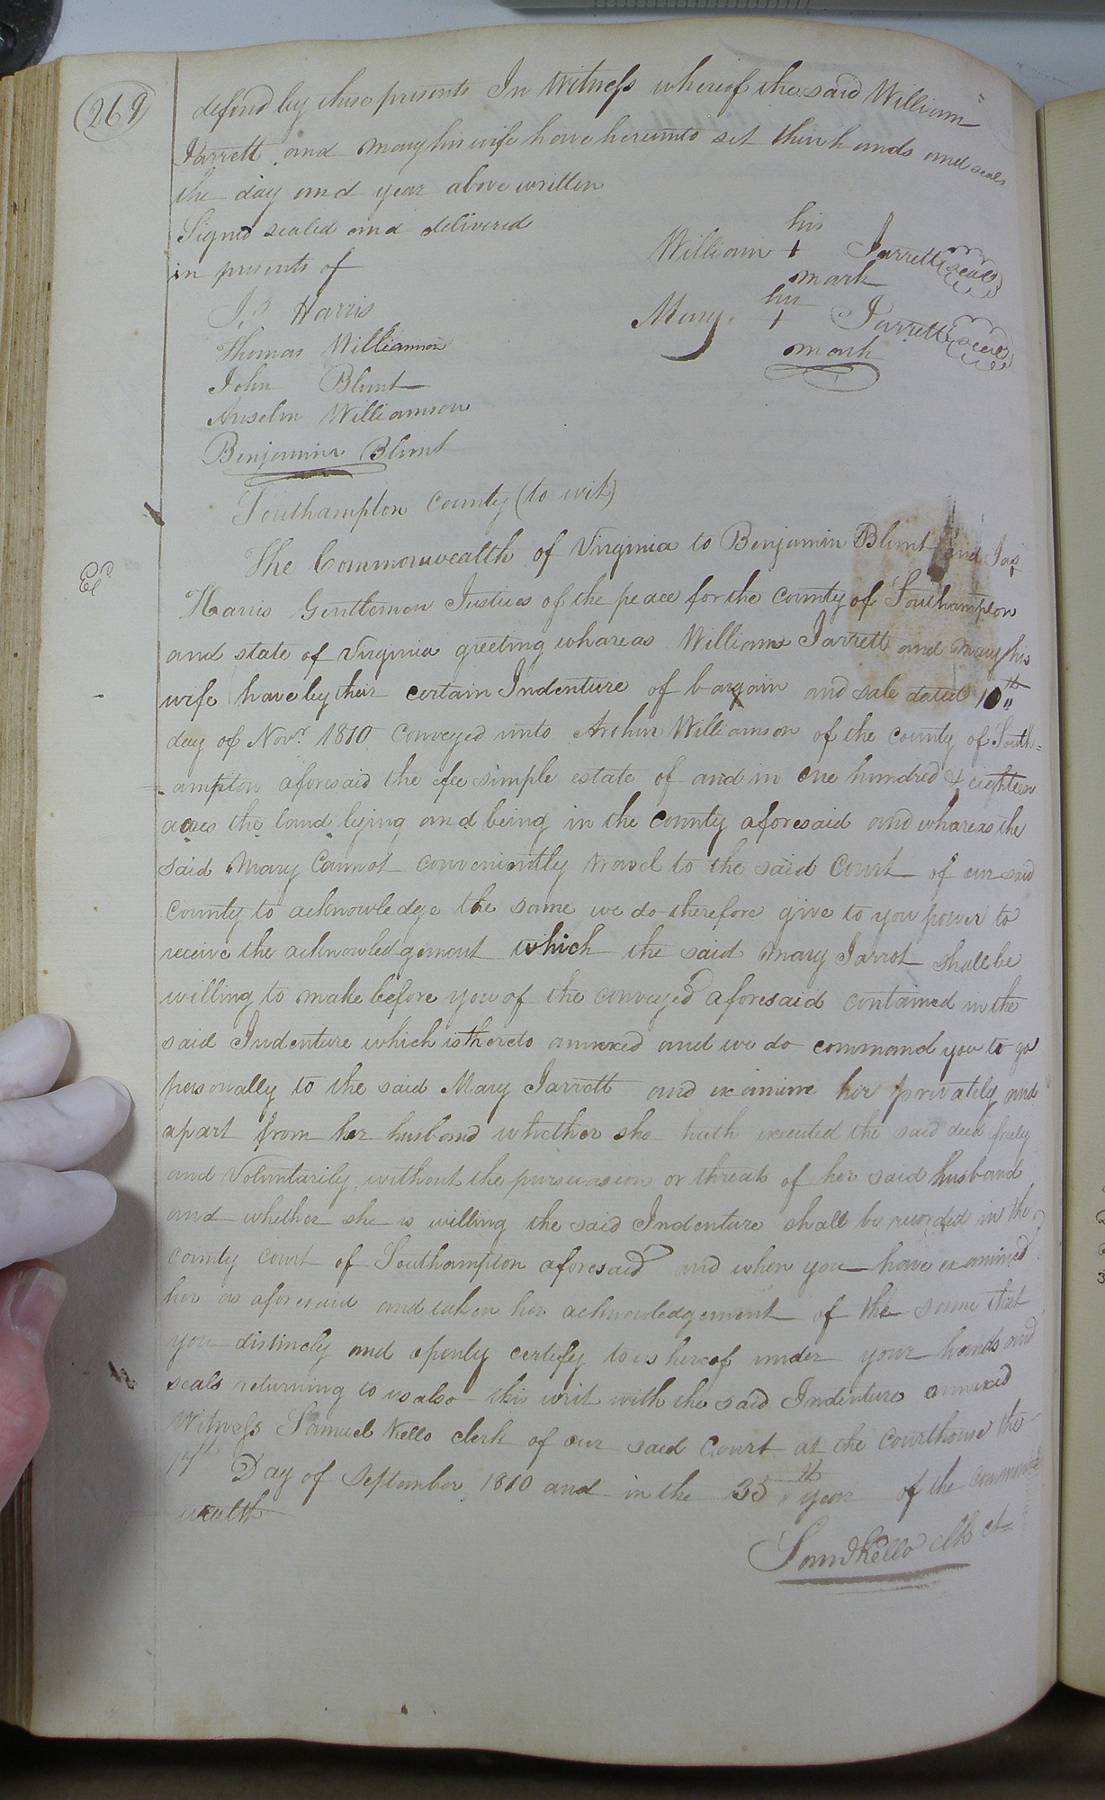 269
defend by these presents In Witness whereof the said William
Jarrett and Mary his wife have hereunto set their hands and seals
the day and year above written
Signed sealed and delivered
in presents of
his
William + Jarrett seal
mark
J. Harris
her
Mary + Jarrett seal
mark
Thomas Williamson
John Blunt
Anselm Williamson
Benjamin Blunt
Southampton County (to wit)
The Commonwealth of Virginia to Benjamin Blunt and Jas
Harris Gentlemen Justices of the peace for the county of Southampton
and state of Virginia greeting whareas William Jarrett and Mary his
wife have by their certain Indenture of bargain and sale dated 10th
day of Novr. 1810 conveyed unto Archer Williamson of the county of South=
=ampton aforesaid the fee simple estate of and in one hundred & eighteen
acres the land lying and being in the county aforesaid and whareas the
said Mary Cannot conveniently travel to the said Court of our said
County to acknowledge the same we do therefore give to you power to
receive the acknowledgement which the said Mary Jarrot shall be
willing to make before you of the conveyed aforesaid contained in the
said Indenture which is thereto annexed and we do command you to go
personally to the said Mary Jarrott and examine her privately and
apart from her husband whether she hath executed the said deed freely
and Voluntarily without the persuasion or threats of her said husband
and whether she is willing the said Indenture shall be recorded in the
county court of Southampton aforesaid and when you have examined
her as aforesaid and taken her acknowledgement of the same that
you distinctly and openly certify to us hereof under your hands and
seals returning to us also this writ with the said Indenture annexed
Witness Samuel Kello clerk of our said Court at the Courthouse the
Day of September 1810 and in the 35th year of the common
wealth
Saml Kello Clk Ct